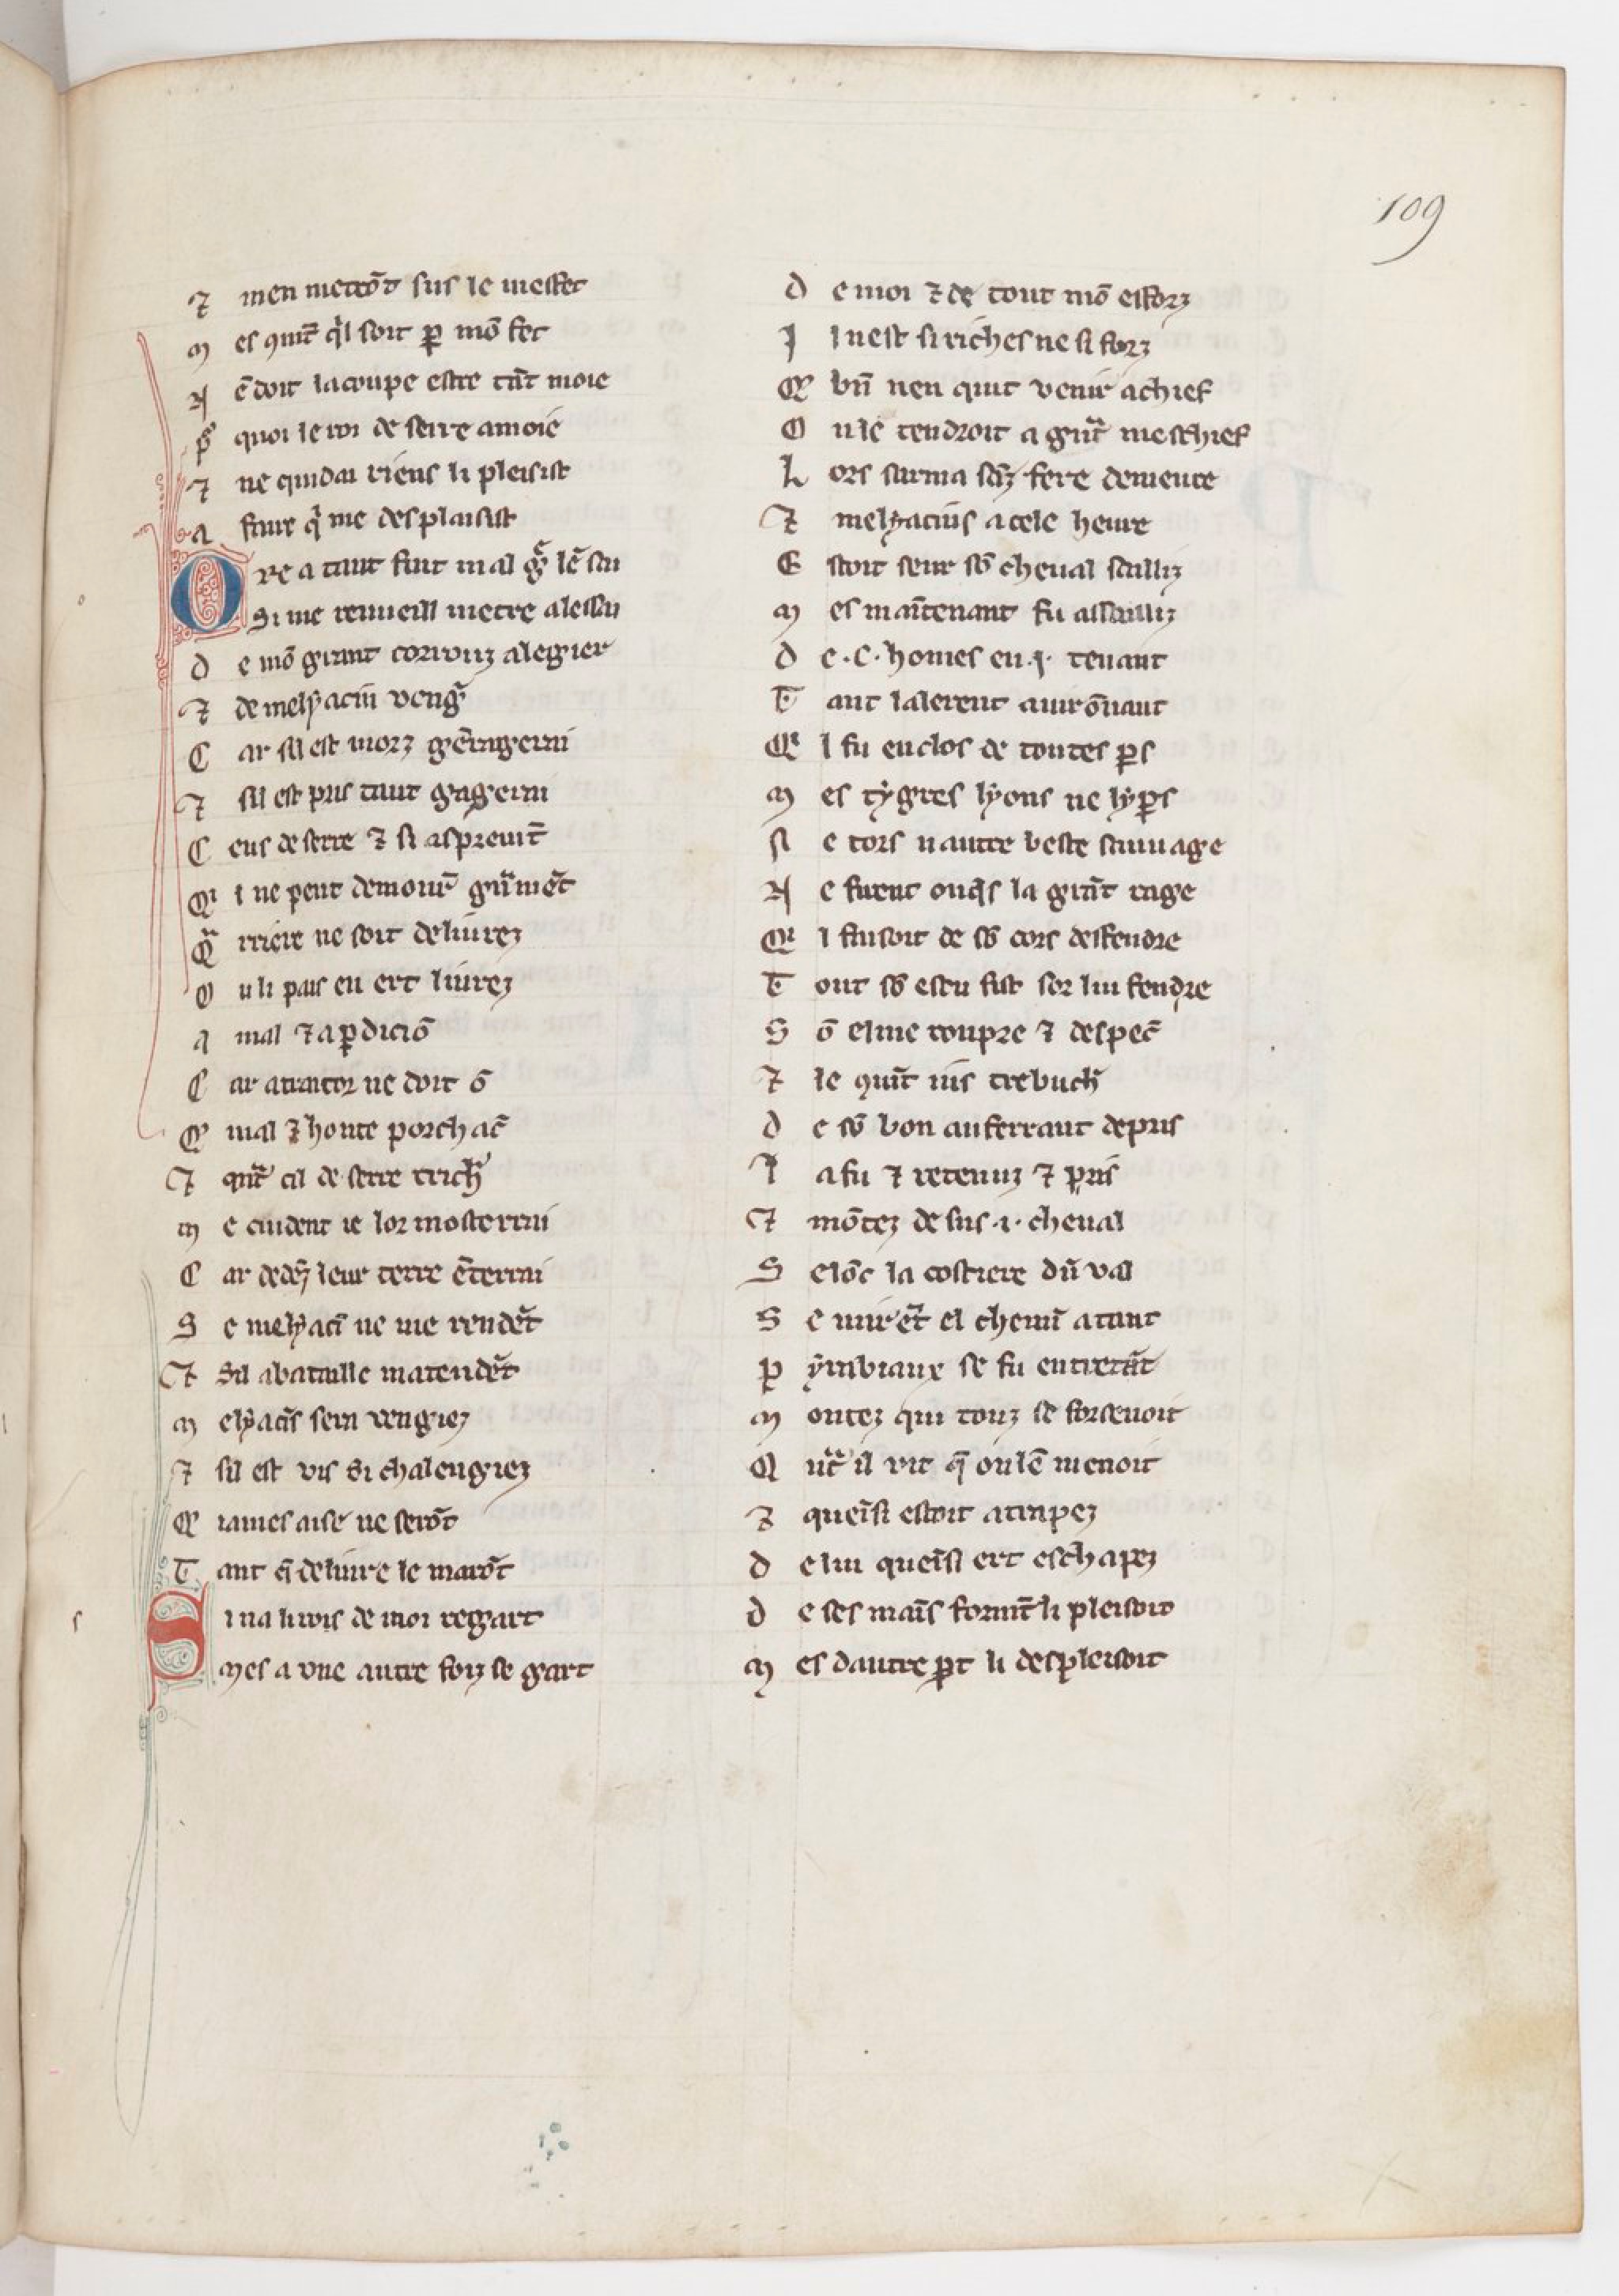 109
⁊ men metrōt sus le meffet
m es quāt q̍l soit ꝑ mō fet
N ē doit la coupe estre tāt moie
p̱ quoi le roi de serre amoie
⁊ ne cuidai riens li pleisist
a faire q̍ me desplaisist
Ore a tant fait mal gͬ lē sai
Si me reuueill metre alessai
d e mō grant corrouz alegier
⁊ de melyacin veng̾
C ar sil est morz gēragerai
⁊ sil est pris tant gagerai
C eus de serre ⁊ si aspremēt
Qi ne peut demour̄ gñmēt
Q̾ rriere ne soit deliurez
O u li pais en ert liurez
a mal ⁊ a ꝑdiciō
C ar atraitor ne doit ō
Q̍ mal ⁊ honte porchac̄
⁊ qn̄t cil de serre trich̾
m e cuident ie lor mosterrai
C ar dedēz leur terre ēterrai
S e melyacī ne me rendēt
⁊ Sil abataille matendēt
m elyacīs sera vengiez
⁊ sil est vis si chalengiez
Q̍ iames aise ne serōt
T ant q̄ deliure le marōt
Si na li rois de moi regart
mes a vne autre foiz se gart
d e moi ⁊ de tout mō efforz
I l nest si riches ne si forz
Q̍ bn̄ nen quit venir achief
O u le tendroit a grāt meschief
L ors sarma sāz fere demeure
⁊ melyacins a cele heure
E stoit seur sō cheual sailliz
m es maītenant fu assailliz
d e .c. homes en .i. tenant
T ant lalerent auirōnant
Qi l fu enclos de toutes ꝑs
m es tygres lyons ne lyꝑs
N e tors nautre beste sauuage
N e furent onq̄s la grāt rage
Qi l faisoit de sō cors deffendre
T out sō escu fist sor lui fendre
S ō elme rōpre ⁊ despec̄
⁊ le quāt ius trebuch̾
d e sō bon auferrant depuis
I a fu ⁊ retenuz ⁊ pris
⁊ mōtez de sus .i. cheual
S elōc la costiere dū val
S e mirēt el chemī atant
P yrabiaux se fu entretāt
m ontez qui touz se forsenoit
Q nāt il vit q̄ on lē menoit
⁊ queīsi estoit atrapez
d e lui queīsi ert eschapez
d e ses maīs formēt li pleisoit
m es dautre ꝑt li despleisoit